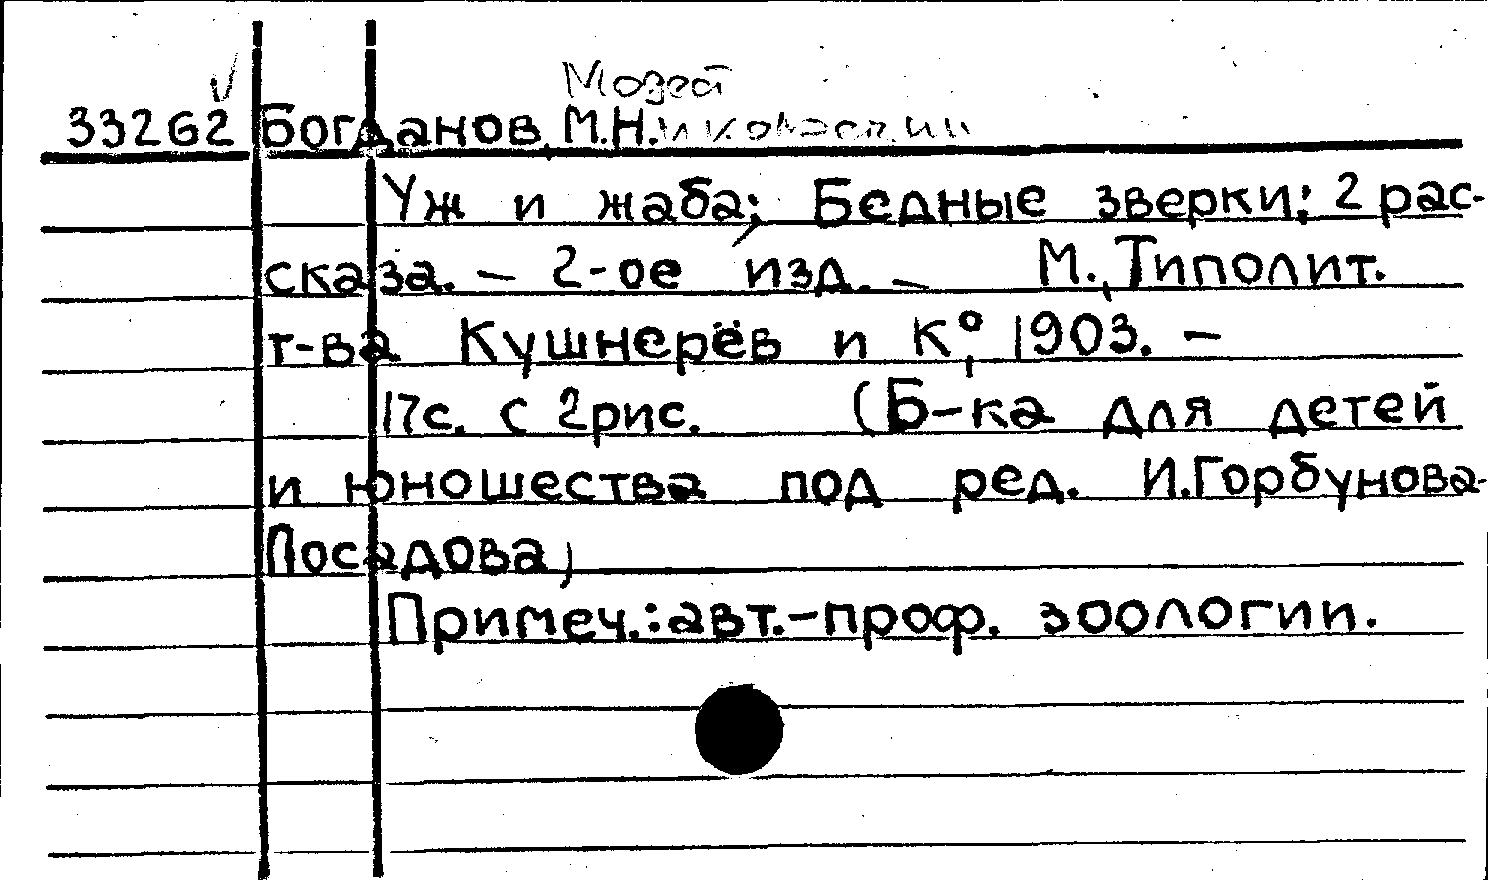 Модест
33262 Богданов, М.Н.иколаевич
Уж и жаба; Бедные зверки: 2 рас-
сказа. – 2-ое изд. – М., Типолит.
т-ва Кушнерёв и К°, 1903. –
17с. с 2рис. (Б-ка для детей
и юношества под ред. И.Горбунова-
Посадова)
Примеч.: авт.-проф. зоологии.